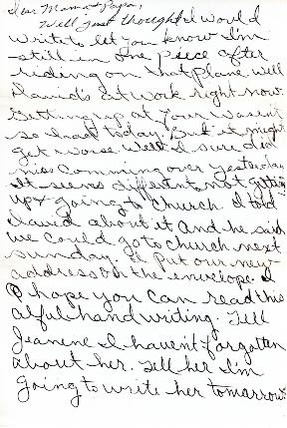 Dear Mama & Papa,
Well Just thought I would
write to let you know I'm
still in one piece after
riding on that plane. Well
David's at work right now.
Getting up at four wasn't
so bad today. But it might
get worse. Well I sure did
miss Comming over yesterday
It seems different not getting
up & going to Church. I told
David about it And he said
we could go to Church next
sunday. I'll put our new
address on the envelope. I
hope you can read this
alful hand writing. Tell
Jeanene I haven't forgotten
about her. Tell her I'm
going to write her tomarrow.